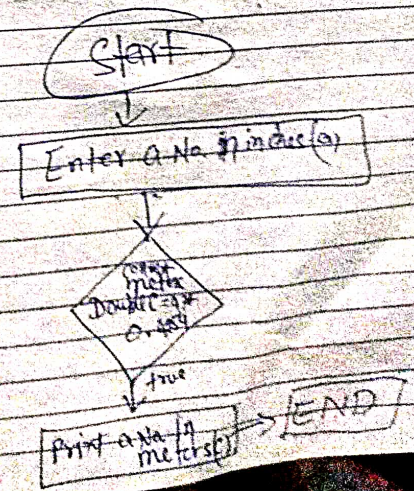 Start
Enter a No in inches(a)
const
meter
Double c = a*
0.0254
true
Print a No in
meters(c)
END